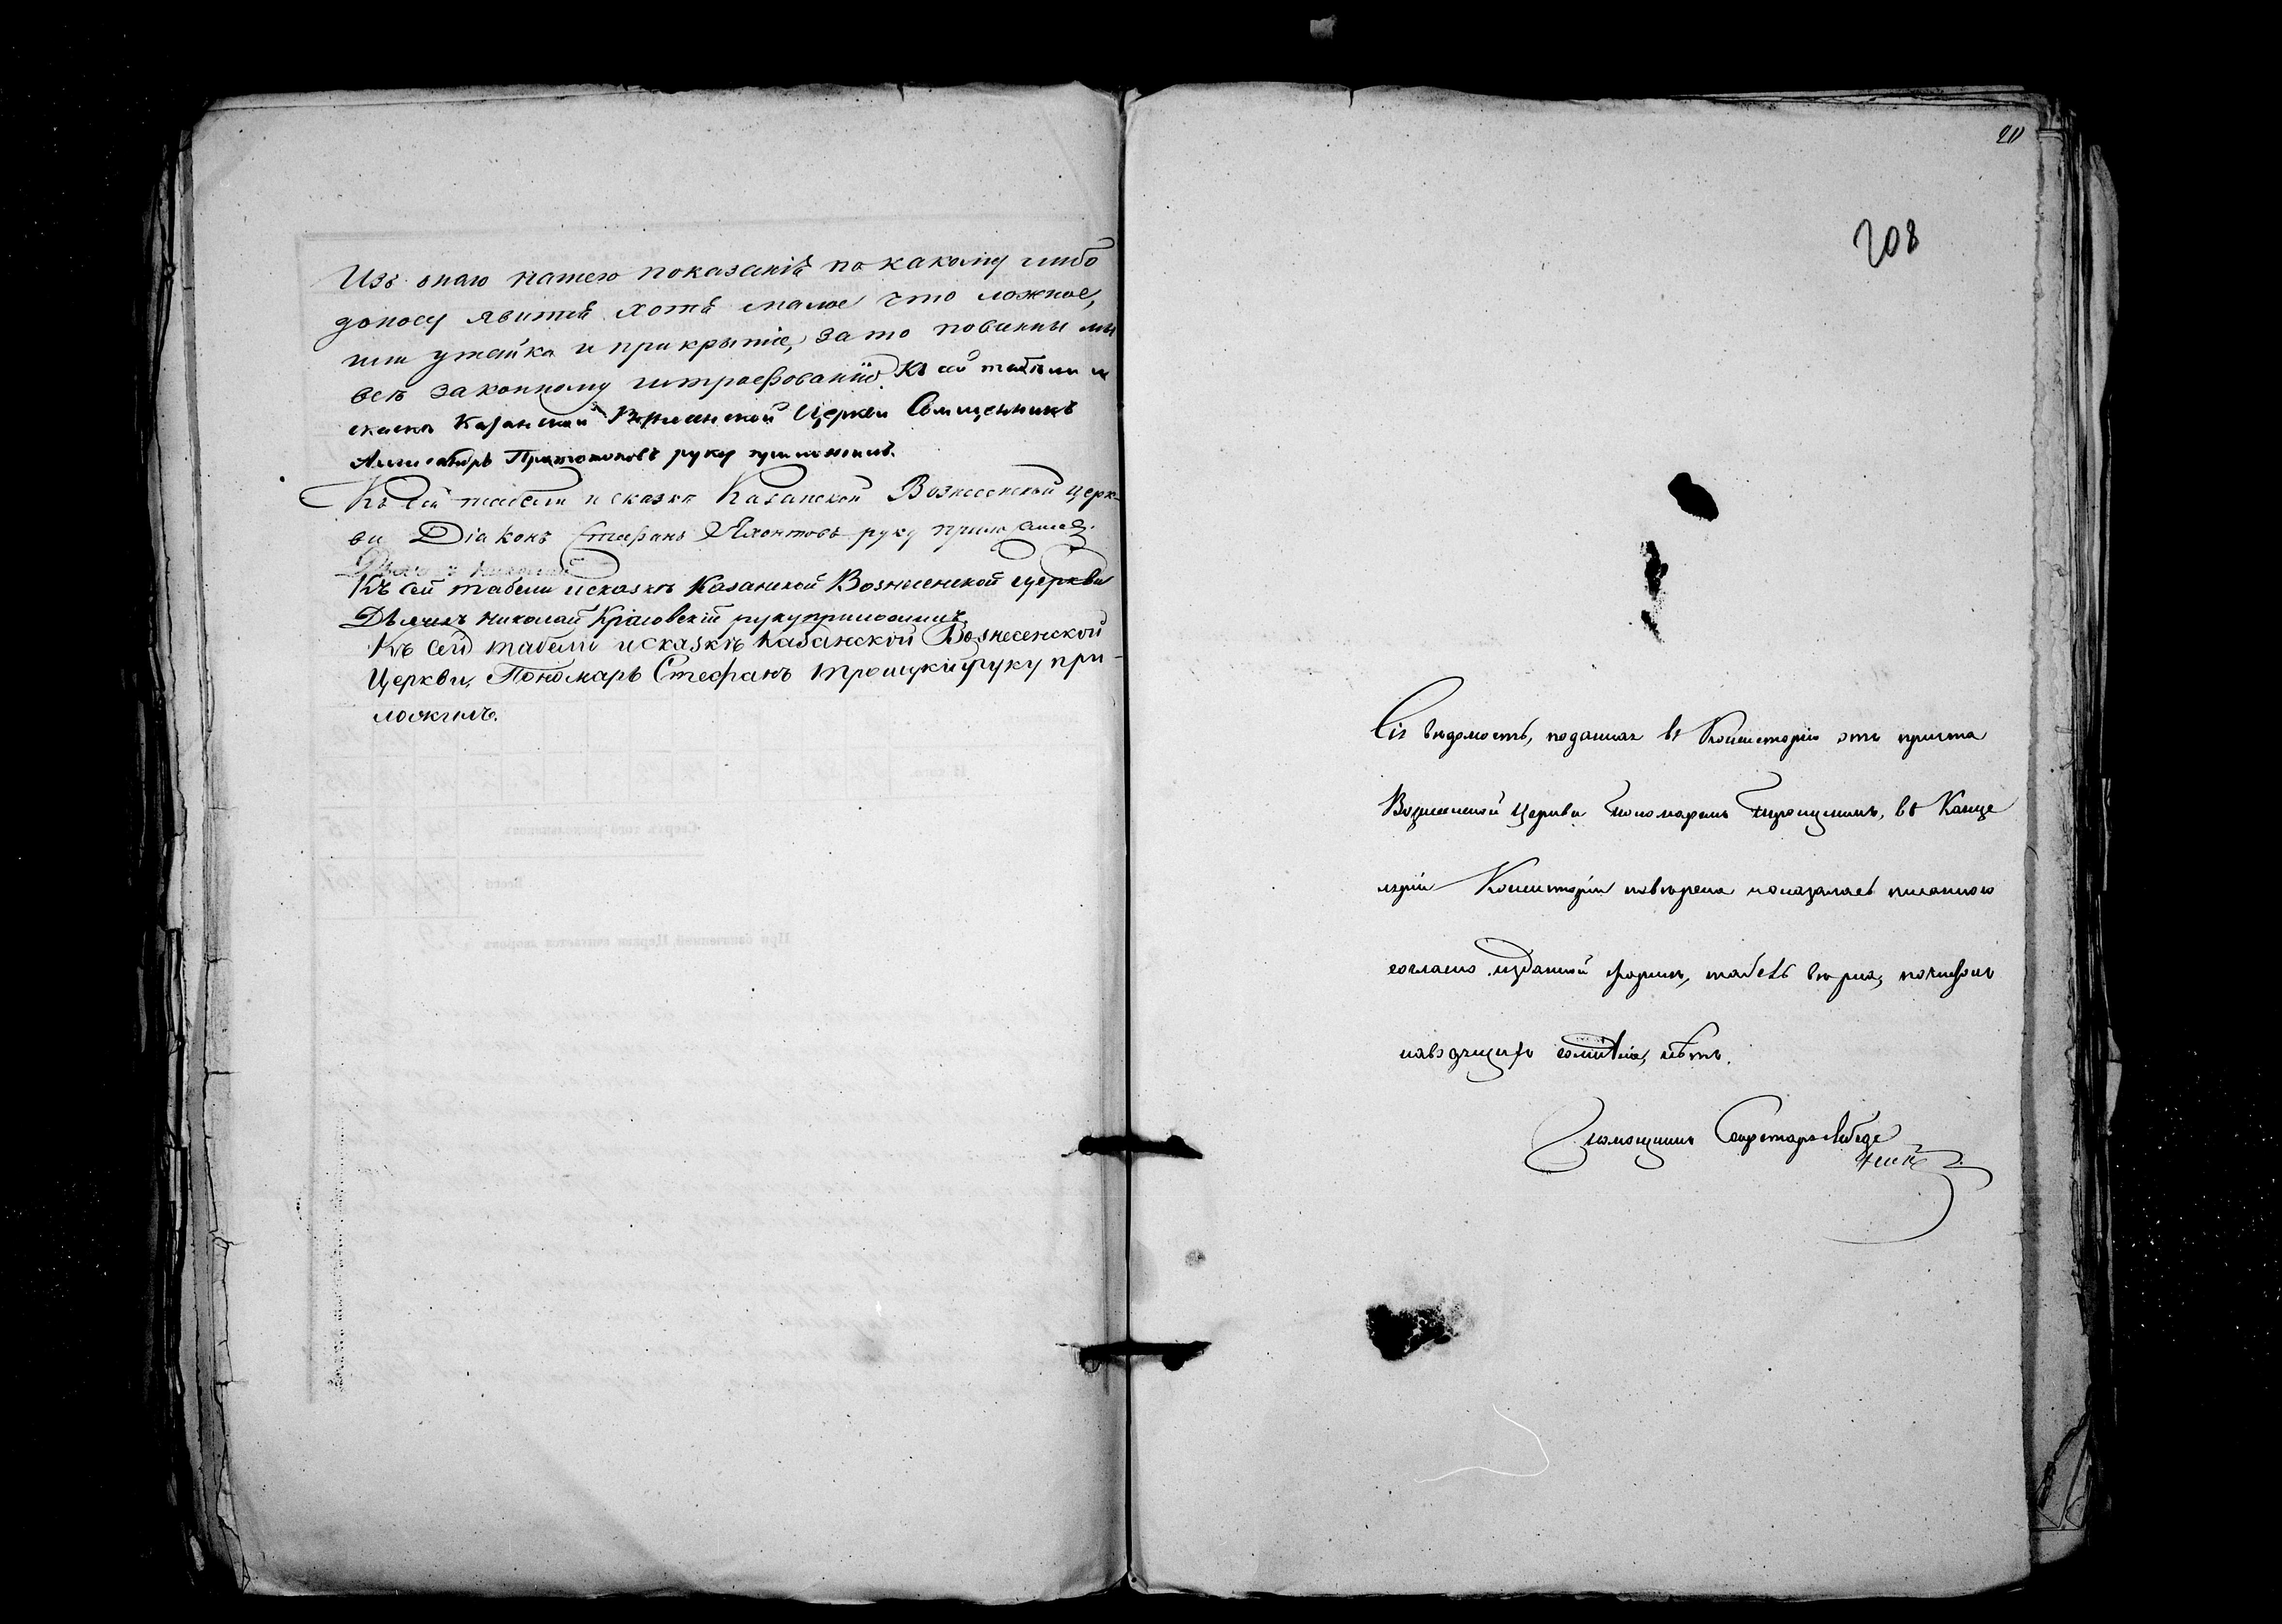 Изъ онаю нашею показанія по какому либо
доносу явится хотя малое что ложное,
или утайка и прикрытіе, за то повинны мы
всѣ законному штрафованію. Къ сей табели и
сказкѣ Казанской Вознесенской Церкви Священникъ
Александръ Протопоповъ руку приложилъ.
Къ сей табели и сказкѣ Казанской Вознесенской церк-
ви Діаконъ Стефанъ Яхонтовъ руку приложилъ.
Къ сей табели и сказкѣ Казанской Вознесенской церкви
Дьячекъ Николай руку приложилъ.
Къ сей табели и сказкѣ Казанской Вознесенской
Церкви, Пономарь Стефанъ Троицкій руку при-
ложилъ.
208
Сія вѣдомость, поданная въ Консисторію отъ причта
Вознесенской Церкви пономаремъ Троицкимъ, въ Канце
ляріи Консисторіи повѣрена и оказалась писанною
согласно изданной формѣ, табель вѣрна, почистокъ
наводящихъ сомнѣніе, нѣтъ.
Помощникъ Секретаря